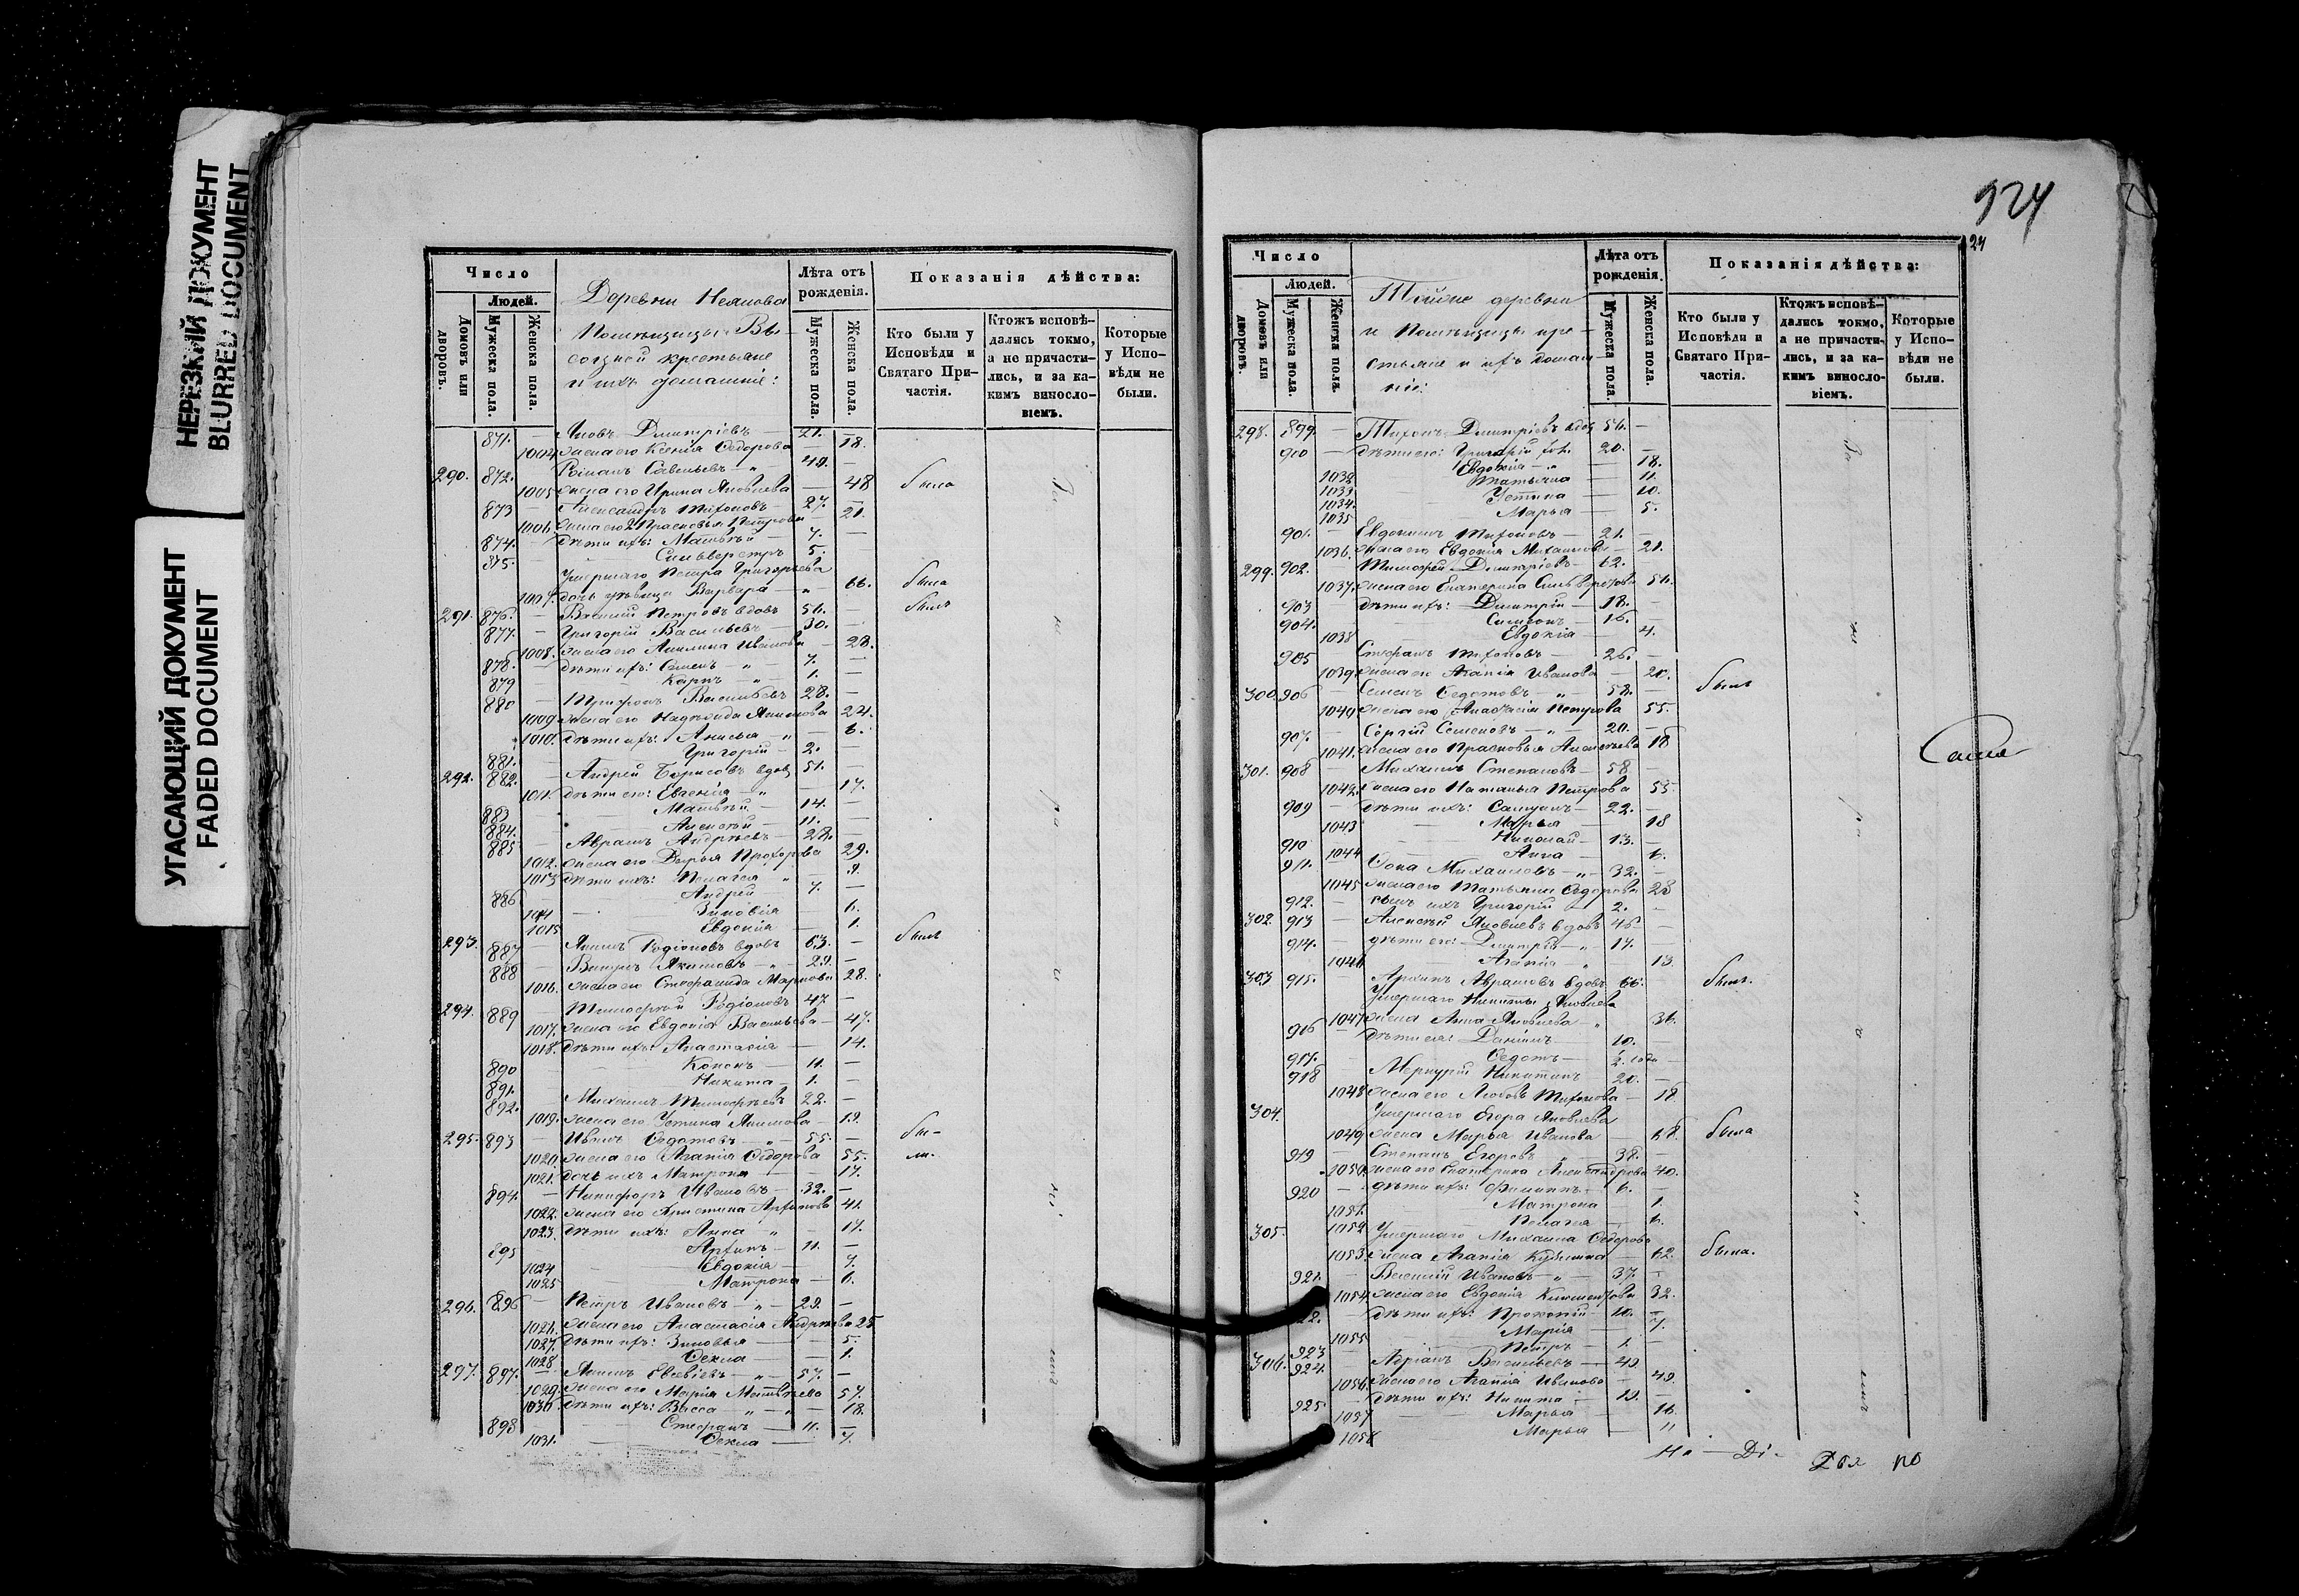 НЕРЕЗКИЙ ДОКУМЕНТ
BLURRED DOCUMENT
УГАСАЮЩИЙ ДОКУМЕНТ
FADED DOCUMENT
Число
Людей.
Домовъ или дворовъ.
Мужеска пола.
Женска пола.
Деревни
Помѣщицы
крестьяне
и ихъ домашніе:
Лѣта отъ рожденія.
Мужеска пола.
Женска пола.
Показанія дѣйства:
Кто были у Исповѣди и Святаго Причастія.
Ктожъ исповѣдались токмо, а не причастились, и за какимъ винословіемъ.
Которые у Исповѣди не были.
871. — Яковъ Дмитріевъ — 21. —
1004. жена его Ксенія Ѳедорова — 18.
290. 872. — Романъ Савельевъ — 49. —
1005. жена его Ирина Яковлева — 48 была
873 — Александръ Тихоновъ — 27. —
1006. жена его Прасковья Петрова 21.
874. — дѣти ихъ: Матвѣй — 7. —
875. Сильвестръ 5. —
Умершаго Петра Григорьева
1007. дочь дѣвица Варвара — 66. была
291. 876. — Василій Петровъ вдовъ 56. — былъ
877. — Григорій Васильевъ — 30. —
1008. жена его Акилина Иванова — 28.
878. — дѣти ихъ: Семенъ — 7. —
879 — Карпъ — 1. —
880 — Трифонъ Васильевъ 28. —
1009. жена его Надежда Акимова 24.
1010. дѣти ихъ: Анисья — 6.
881. Григорій — 2. —
292. 882. — Андрей Борисовъ вдов 51. —
1011. дѣти его: Евгенія — 17.
883 Матвѣй — 14. —
884. Алексѣй — 11. —
885 — Аврамъ Андреевъ — 28. —
1012. жена его Дарья Прохорова 29.
1013 дѣти ихъ: Пелагея — 9.
886 Андрей — 7. —
1014 Зиновія — 6.
1015 Евдокія — 1.
293. 887 — Акимъ Родіоновъ вдовъ 63. — былъ
888 — Викулъ Якимовъ — 29. —
1016. жена его Стефанида Маркова 28.
294. 889 — Тимофей Родіоновъ 47. —
1017. жена его Евдокія Васильева — 47.
1018. дѣти ихъ: Анастасія — 14.
890 Кононъ — 11. —
891. Никита — 1. —
892. — Михаилъ Тимофеевъ 22. —
1019. жена его Устина Акимова — 19.
295. 893 — Иванъ Ѳедотовъ — 55. — бы-
1020. жена его Агапія Ѳедорова 55. ли.
1021. дочь ихъ Матрона — 17.
894. — Никифоръ Ивановъ — 32. —
1022. жена его Христина Архипова 41.
1023. дѣти ихъ: Анна — 17.
895 Архипъ — 11. —
1024 Евдокія — 7.
1025 Матрона — 6.
296. 896 — Петръ Ивановъ — 29. —
1026. жена его Анастасія Андреева 25
1027. дѣти ихъ: Зиновья — 5.
1028 Ѳекла — 1.
297. 897. — Акимъ Евсѣевъ — 57. —
1029. жена его Марія Матвѣева 57.
1030. дѣти ихъ: Васса — 18.
898 Стефанъ — 11. —
1031. Ѳекла — 7.
924
24
Число
Людей.
Домовъ или дворовъ.
Мужеска пола.
Женска пола.
Тойже деревни
и Помѣщицы кре-
стьяне и ихъ домаш-
ніе:
Лѣта отъ рожденія.
Мужеска пола.
Женска пола.
Показанія дѣйства:
Кто были у Исповѣди и Святаго Причастія.
Ктожъ исповѣдались токмо, а не причастились, и за какимъ винословіемъ.
Которые у Исповѣди не были.
298. 899. — Тихонъ Дмитріевъ вдов 56. —
900 — дѣти его: Григорій 20. —
Евдокія — 18.
1032 Татьяна — 11.
1033 Устина — 10.
1034. Марья — 5.
1035
901. — Евдокимъ Тихоновъ — 21. —
1036. жена его Евдокія Михаилова — 21.
299. 902. — Тимофей Дмитріевъ — 62. —
1037. жена его Екатерина Сильверстова 56.
903 — дѣти ихъ: Дмитрій — 18. —
904. Симеонъ — 16. —
1038 Евдокія — 4.
905 Стефанъ Тихоновъ — 26. —
1039. жена его Агапія Иванова — 20.
300. 906 — Семенъ Ѳедотовъ — 58. — былъ
1040 жена его Анастасія Петрова 55.
907. — Сергій Семеновъ — 20. —
1041. жена его Прасковья Алексѣева 18
Саша
301. 908 — Михаилъ Степановъ — 58 —
1042. жена его Наталья Петрова 55
909 — дѣти ихъ: Самуилъ — 22. —
1043 Марья — 18
910 Николай — 13. —
1044 Анна — 6.
911. Ѳока Михаиловъ — 32. —
1045 жена его Татьяна Ѳедорова 28
912. — сынъ ихъ Григорій — 2. —
302. 913 — Алексѣй Яковлевъ вдовъ 45 —
914. — дѣти его: Дмитрій — 17. —
1046 Агапія — 13.
303 915. Архипъ Аврамовъ вдовъ 66. — былъ.
Умершаго Никиты Яковлева
1047 жена Анна Яковлева — 36.
916 дѣти ея: Даніилъ — 10. —
917. Ѳедотъ — ½ года —
918 Меркурій Никитинъ 20. —
1048 жена его Любовь Тихонова — 18
304. Умершаго Егора Яковлева
1049 жена Марья Иванова — 68. была
919 — Степанъ Егоровъ — 38. —
1050. жена его Екатерина Александрова 40.
920 — дѣти ихъ: Филиппъ — 6. —
1051. Матрона — 1.
1052 Пелагея — 6.
305. Умершаго Михаила Ѳедорова
1053. жена Агапія Кузьмина — 62. была.
921. — Василій Ивановъ — 37. —
1054 жена его Евдокія Климентова 32.
22. — дѣти ихъ: Прокопій — 10. —
1055 Марія — 7.
923 Петръ — 1. —
306. 924. — Адріанъ Васильевъ — 49. —
1056. жена его Агапія Иванова — 49.
925 — дѣти ихъ: Никита — 19. —
1057 Марья — 16.
1058 Марья — 11